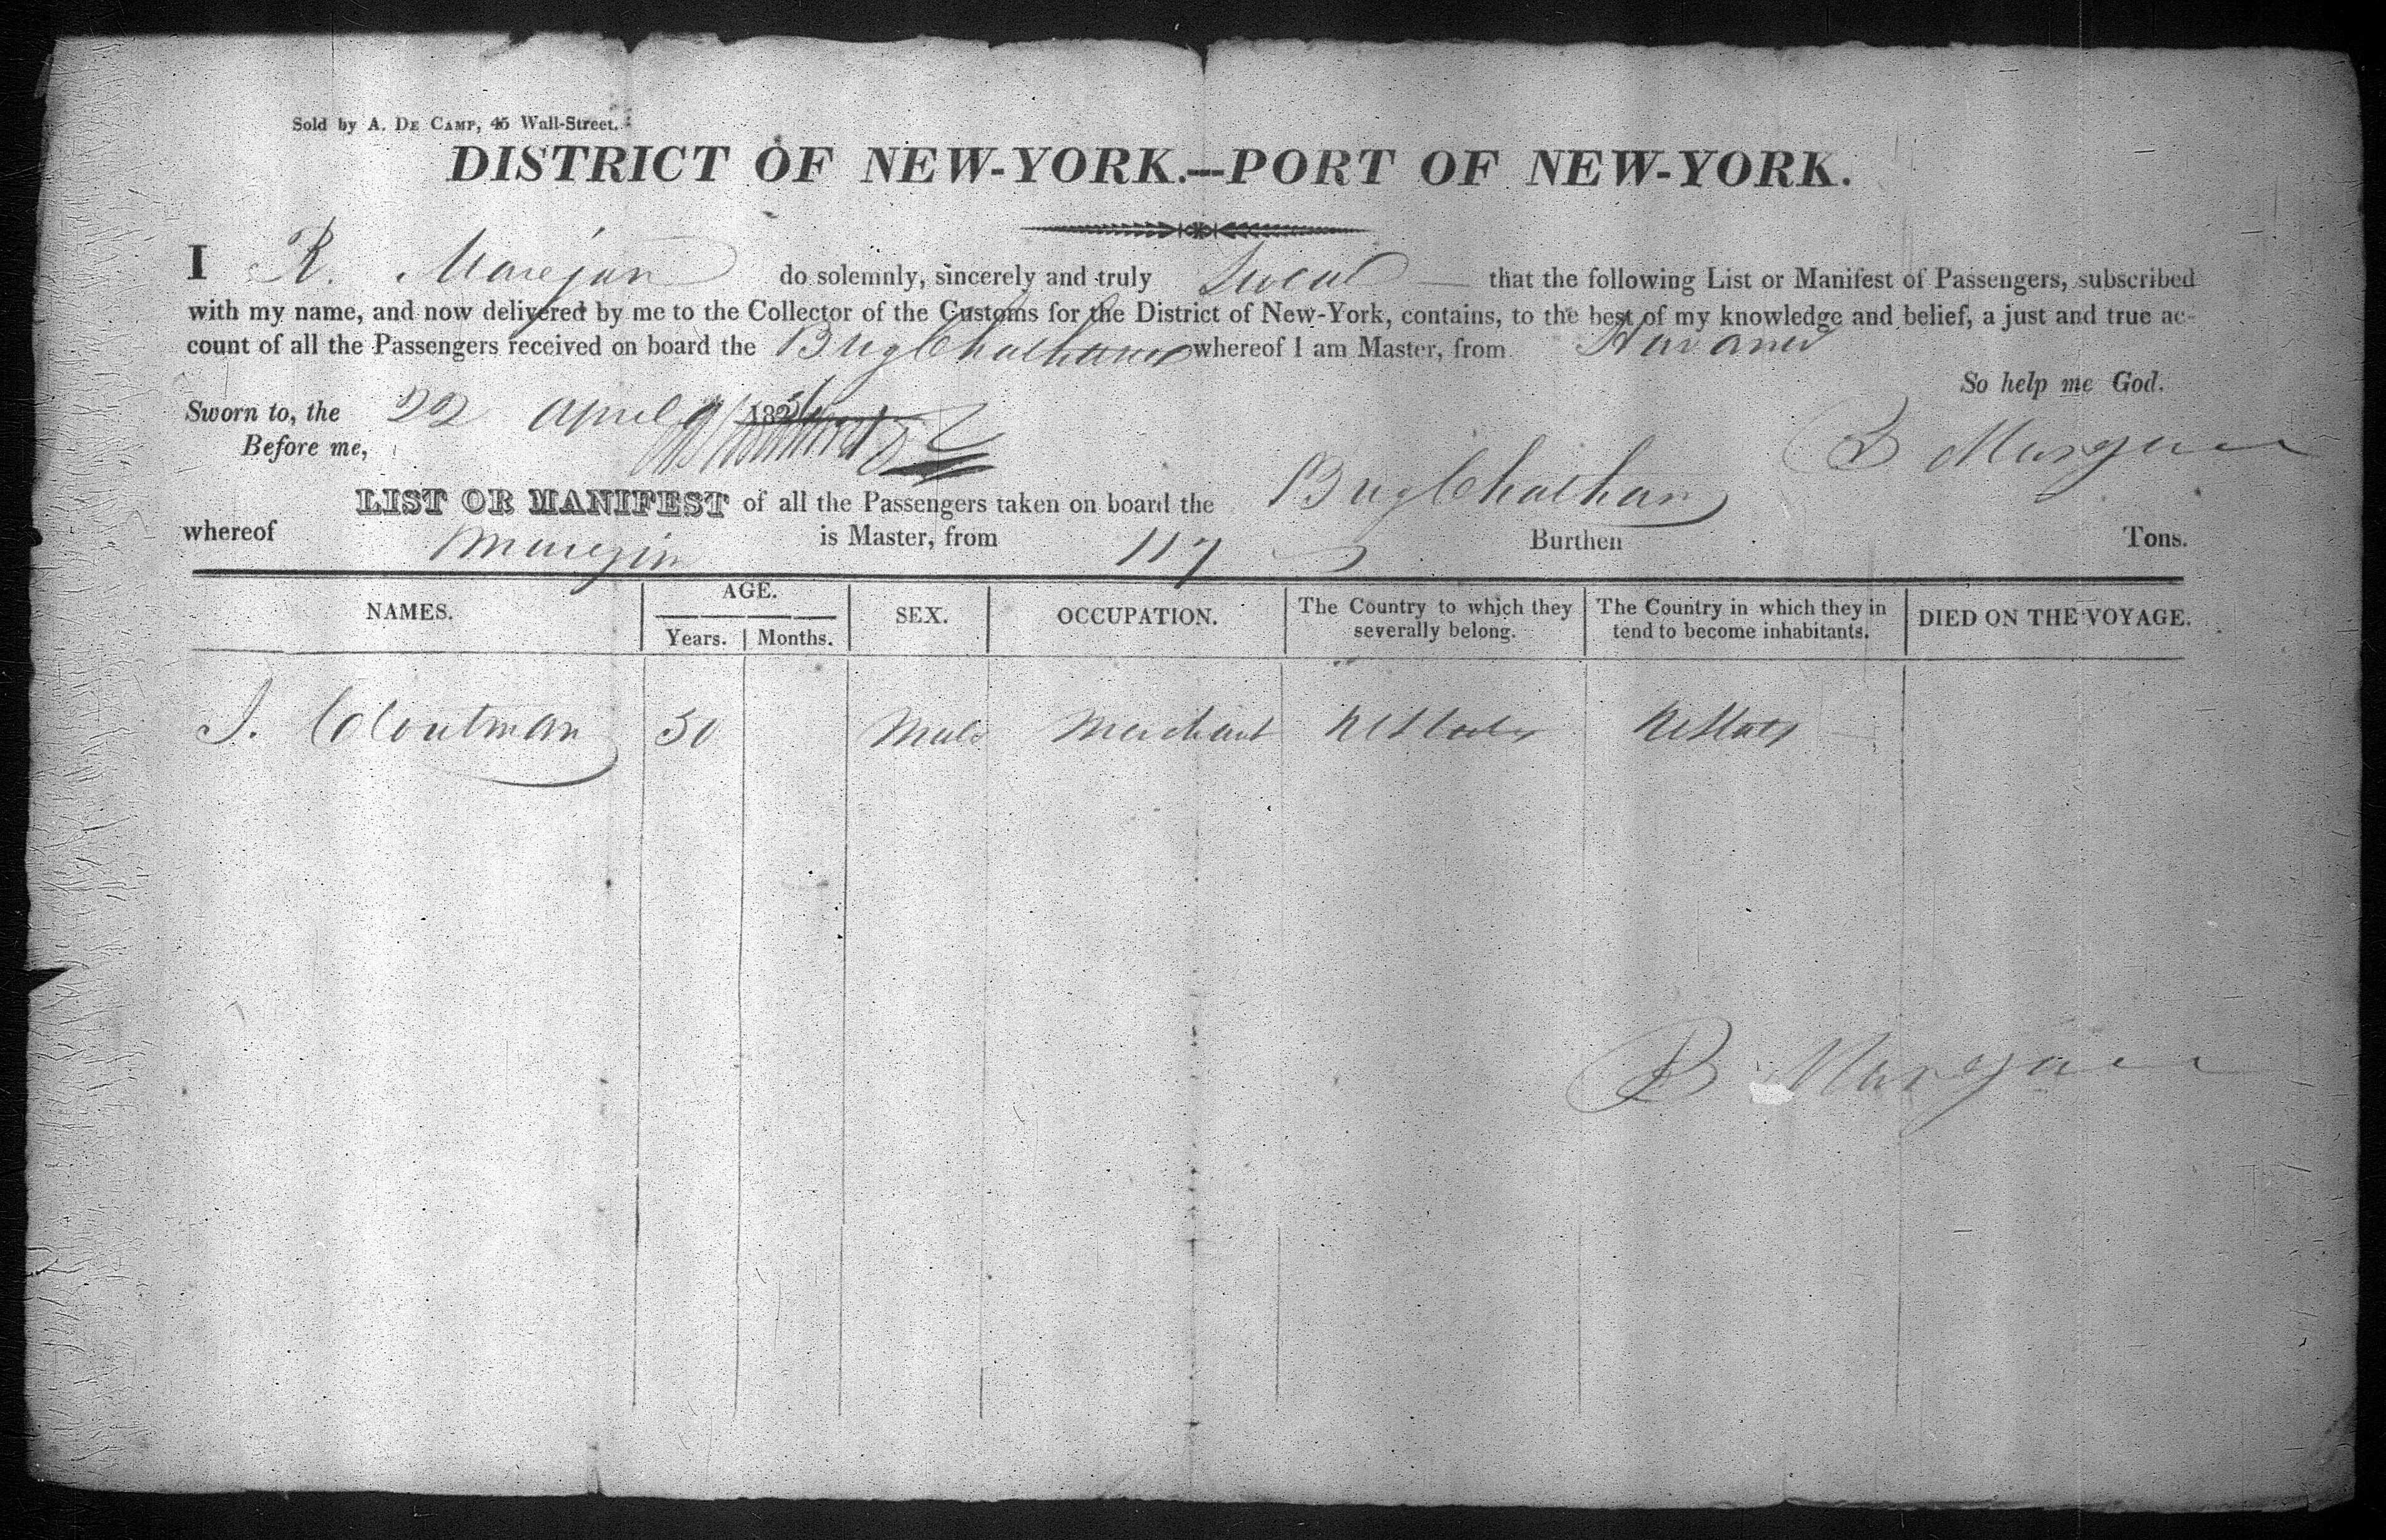 Sold by A. De Camp, 45 Wall-Street.
DISTRICT OF NEW-YORK.—PORT OF NEW-YORK.
I R. Marejan do solemnly, sincerely and truly Swear that the following List or Manifest of Passengers, subscribed
with my name, and now delivered by me to the Collector of the Customs for the District of New-York, contains, to the best of my knowledge and belief, a just and true ac-
count of all the Passengers received on board the Brig Chatham whereof I am Master, from Havana
So help me God.
Sworn to, the 22 April 182
Before me,
LIST OR MANIFEST of all the Passengers taken on board the Brig Chatham
whereof is Master, from 117 Burthen Tons.
NAMES. AGE. SEX. OCCUPATION. The Country to which they severally belong. The Country in which they in tend to become inhabitants. DIED ON THE VOYAGE.
Years. Months.
J. Cloutman 30 Male Merchant UStates UStates